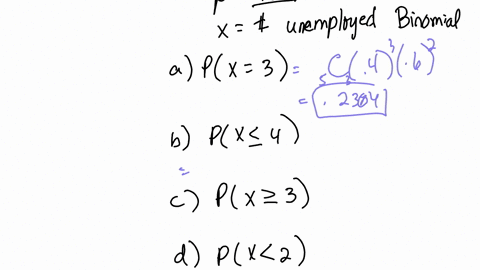 x = # unemployed Binomial
a) P(x = 3) = ₅C₃(.4)³(.6)²
= .2304
b) P(x ≤ 4)
=
c) P(x ≥ 3)
d) P(x < 2)